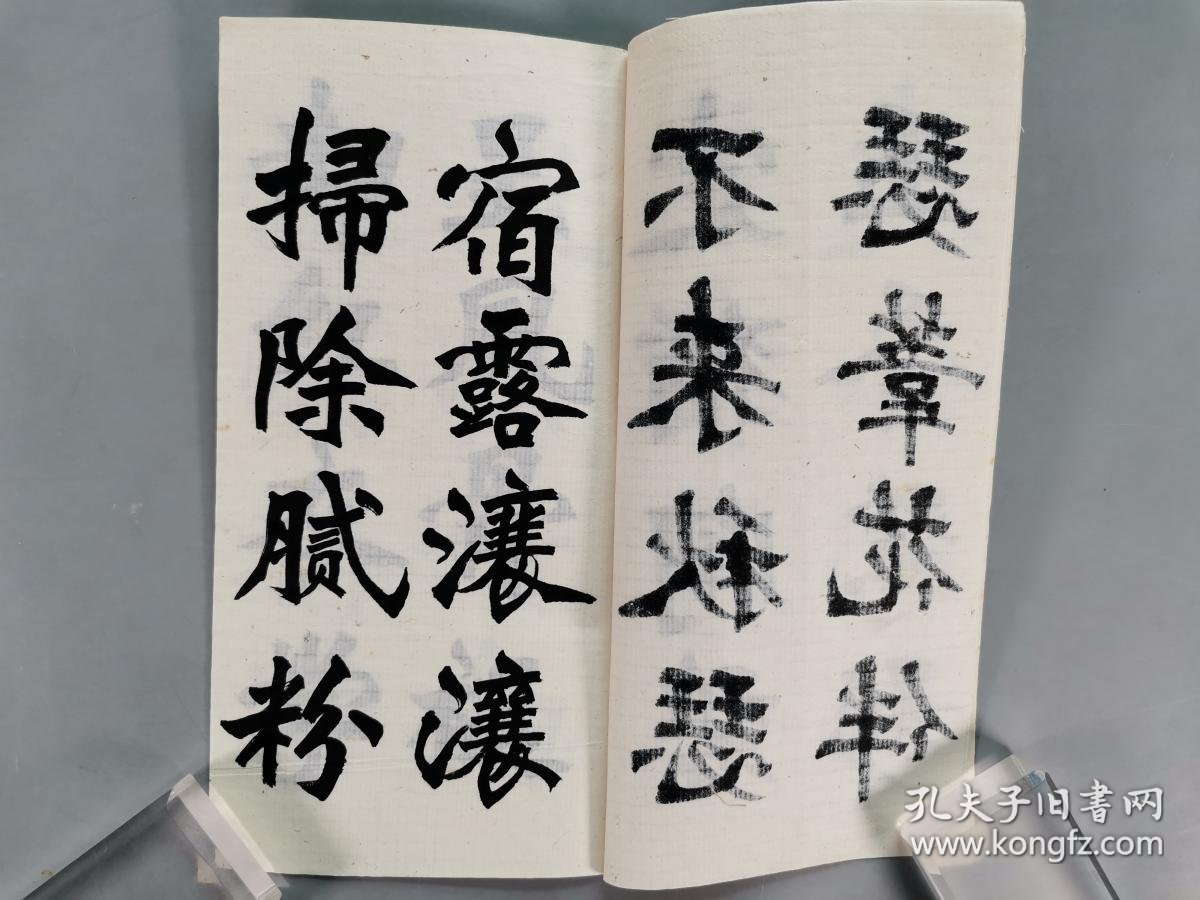 不来秋瑟
瑟葦花伴
宿露瀼瀼
掃除膩粉
孔夫子旧书网
www.kongfz.com